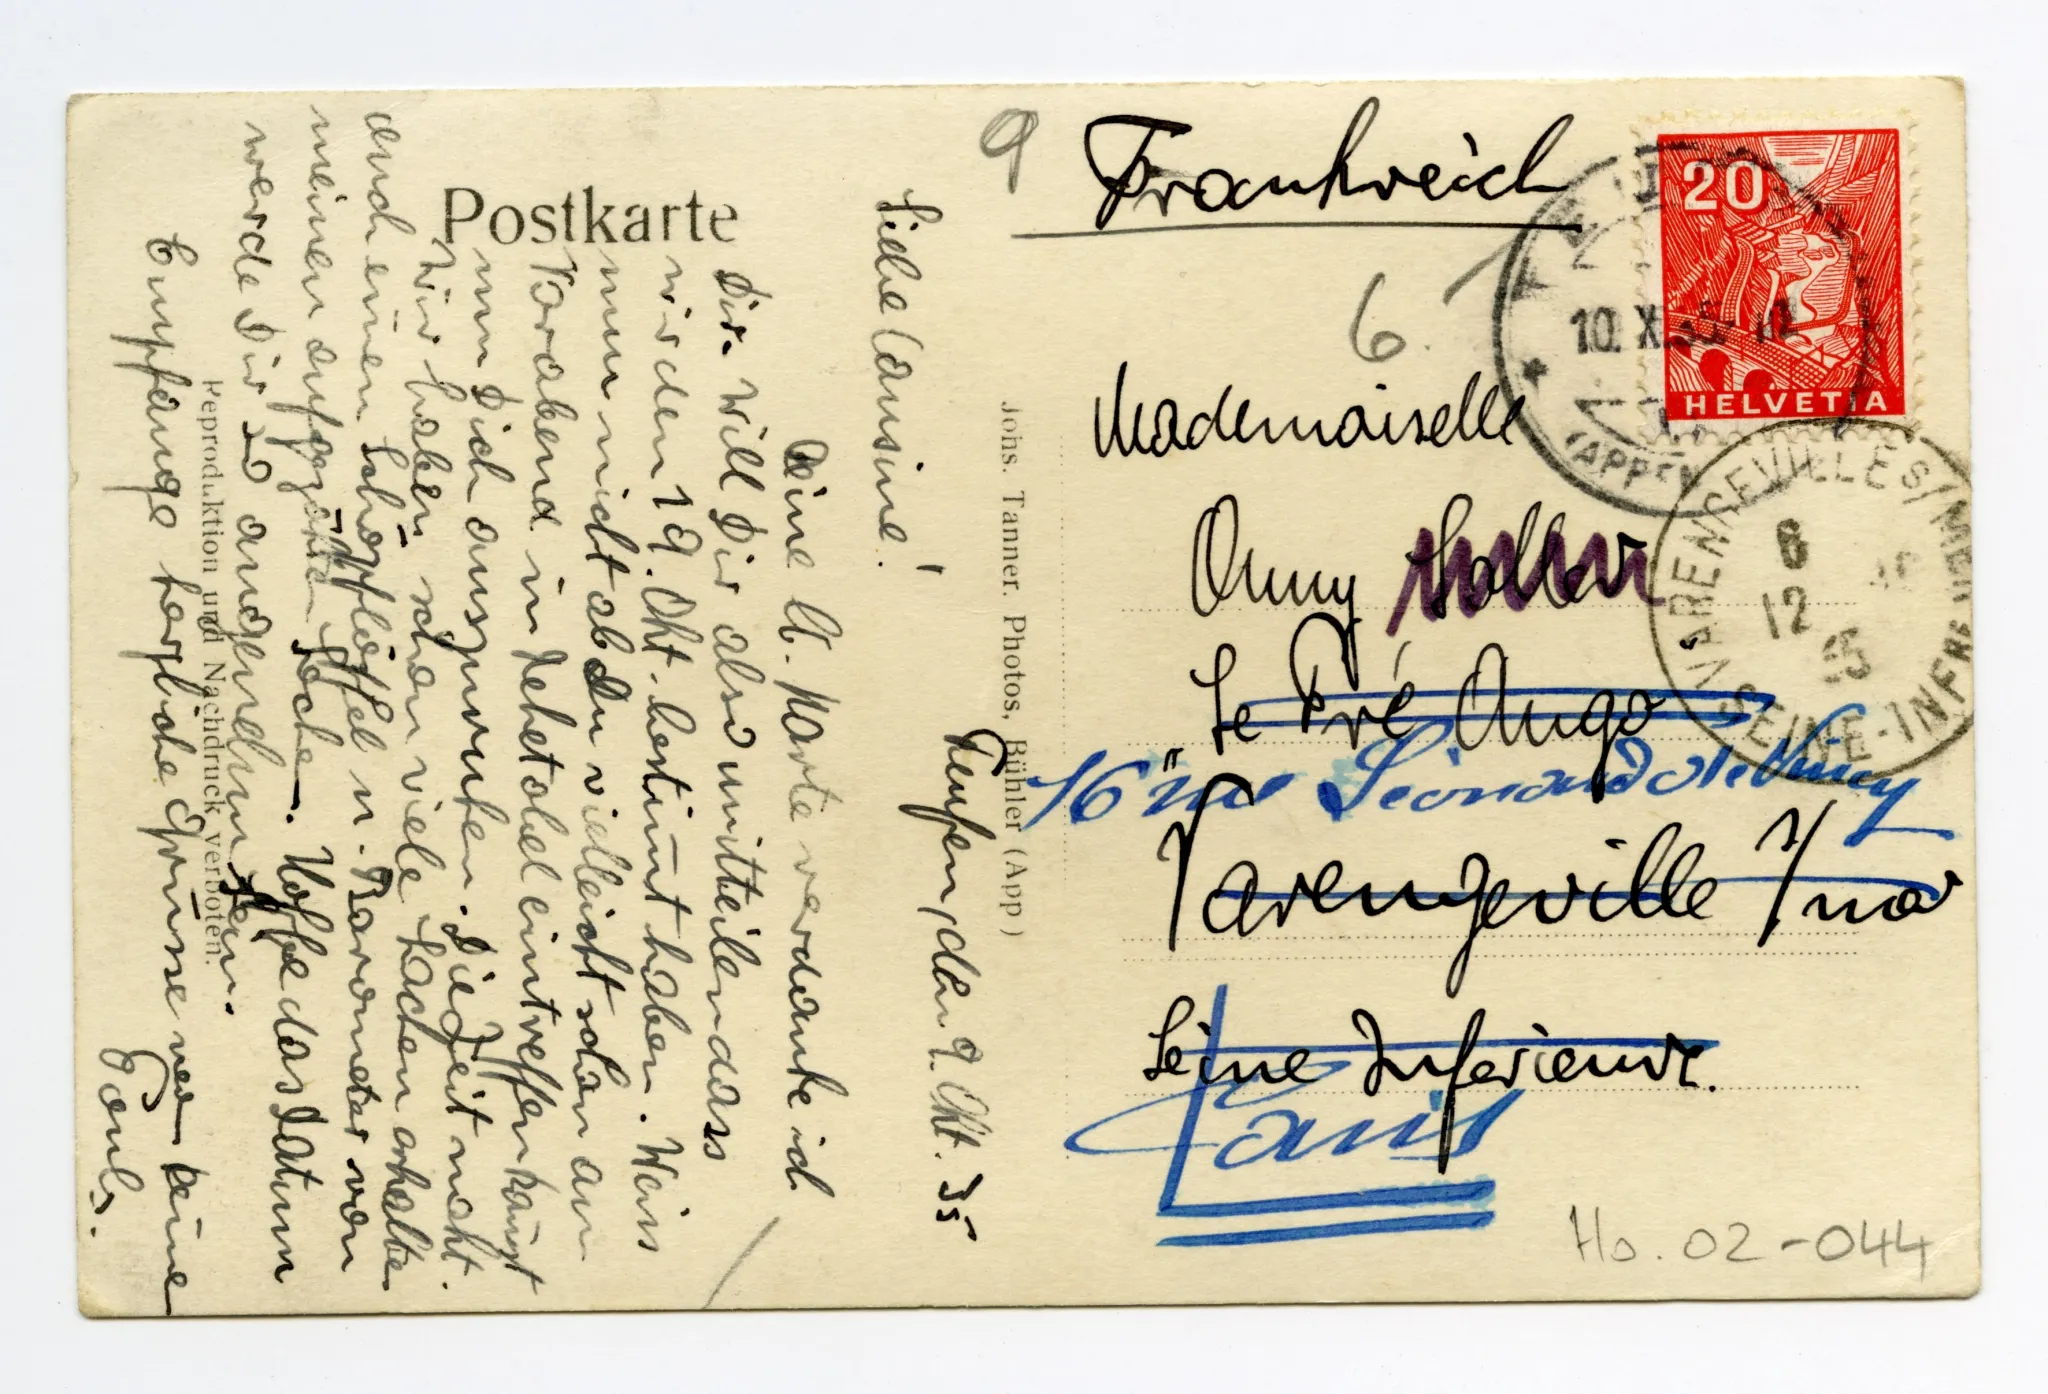 Postkarte
Teufen, den 9. Okt. 35
Liebe Cousine!
Deine lb. Karte verdanke ich
Dir. Will Dir also mitteilen dass
wir den 19. Okt. bestimmt haben. Weiss
nun nicht ob Du vielleicht schon am
Vorabend in Jehetobel eintreffen kannst
um Dich auszuruhen. Die Zeit naht.
Wir haben schon viele Sachen erhalten
auch einen Schöpflöffel u. Barometer von
meinen aufgezählten Sachen. Hoffe das Datum
werde Dir so angenehm sein.
Empfange herzliche Grüsse von Deine
Reproduktion und Nachdruck verboten.
Johs. Tanner, Photos, Bühler (App)
9
Frankreich
6.
Mademoiselle
Anny
Le Pré Ango
16 rue Léonard de Vincy
Varengeville s/mer
Seine Inferieure.
Paris
Ho. 02-044
20
HELVETIA
TEUFEN
10. X. 35
(APPEN
VARENGEVILLE S/MER
8
12
35
SEINE-INFRE